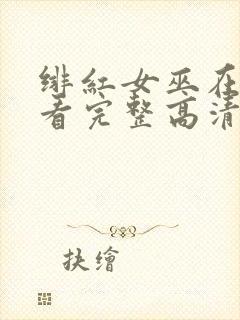 绯红女巫在
看完整高清
抉繪